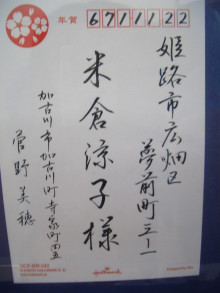 年賀
6711122
姫路市広畑区
夢前町三ー一
米倉涼子様
加古川市加古川町寺家町四五
菅野美穂
Hallmark